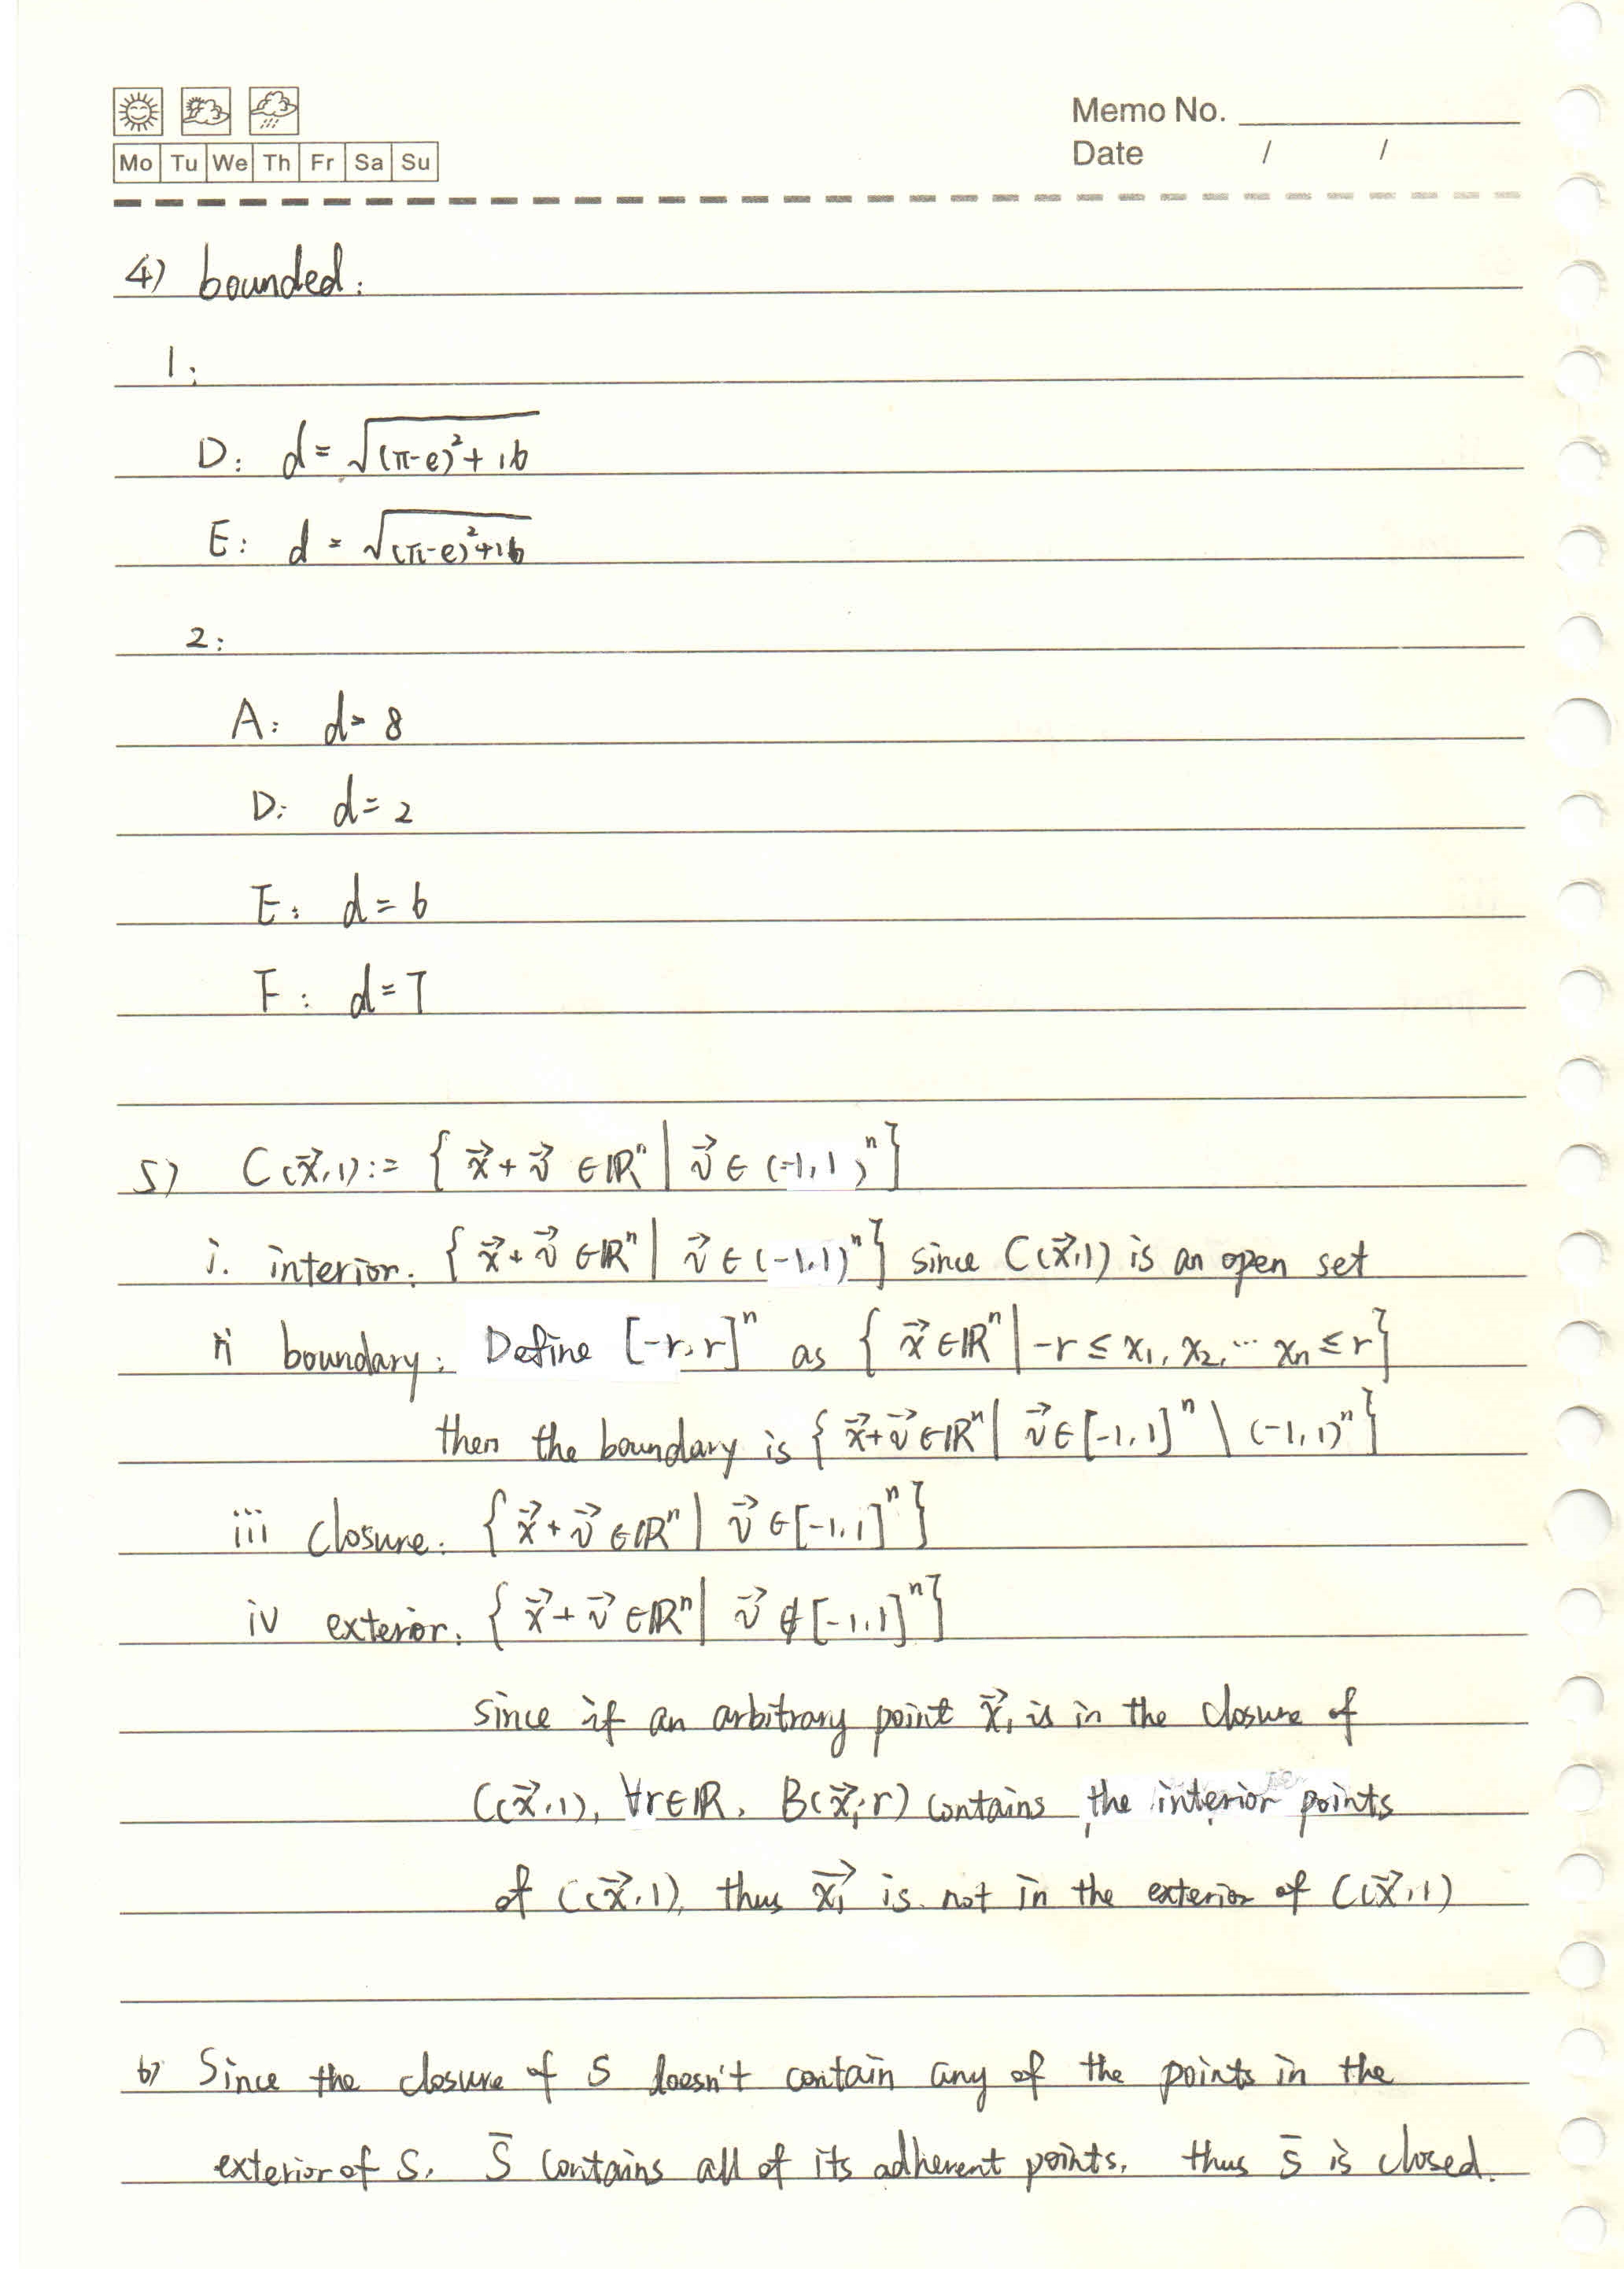 Memo No.
Mo Tu We Th Fr Sa Su
Date / /
4) bounded:
1:
D: d = √((π-e)²+16)
E: d = √((π-e)²+16)
2:
A: d = 8
D: d = 2
E: d = 6
F: d = 7
5) C(x⃗,1) := { x⃗ + v⃗ ∈ ℝⁿ | v⃗ ∈ (-1,1)ⁿ }
i. interior: { x⃗ + v⃗ ∈ ℝⁿ | v⃗ ∈ (-1,1)ⁿ } since C(x⃗,1) is an open set
ii boundary: Define [-r,r]ⁿ as { x⃗ ∈ ℝⁿ | -r ≤ x₁, x₂, ... xₙ ≤ r }
then the boundary is { x⃗+v⃗ ∈ ℝⁿ | v⃗ ∈ [-1,1]ⁿ \ (-1,1)ⁿ }
iii closure: { x⃗ + v⃗ ∈ ℝⁿ | v⃗ ∈ [-1,1]ⁿ }
iv exterior: { x⃗ + v⃗ ∈ ℝⁿ | v⃗ ∉ [-1,1]ⁿ }
since if an arbitrary point x⃗₁ is in the closure of
C(x⃗,1), ∀r∈ℝ, B(x⃗₁,r) contains the interior points
of C(x⃗,1), thus x⃗₁ is not in the exterior of C(x⃗,1)
6) Since the closure of S doesn't contain any of the points in the
exterior of S, S̄ contains all of its adherent points, thus S̄ is closed.